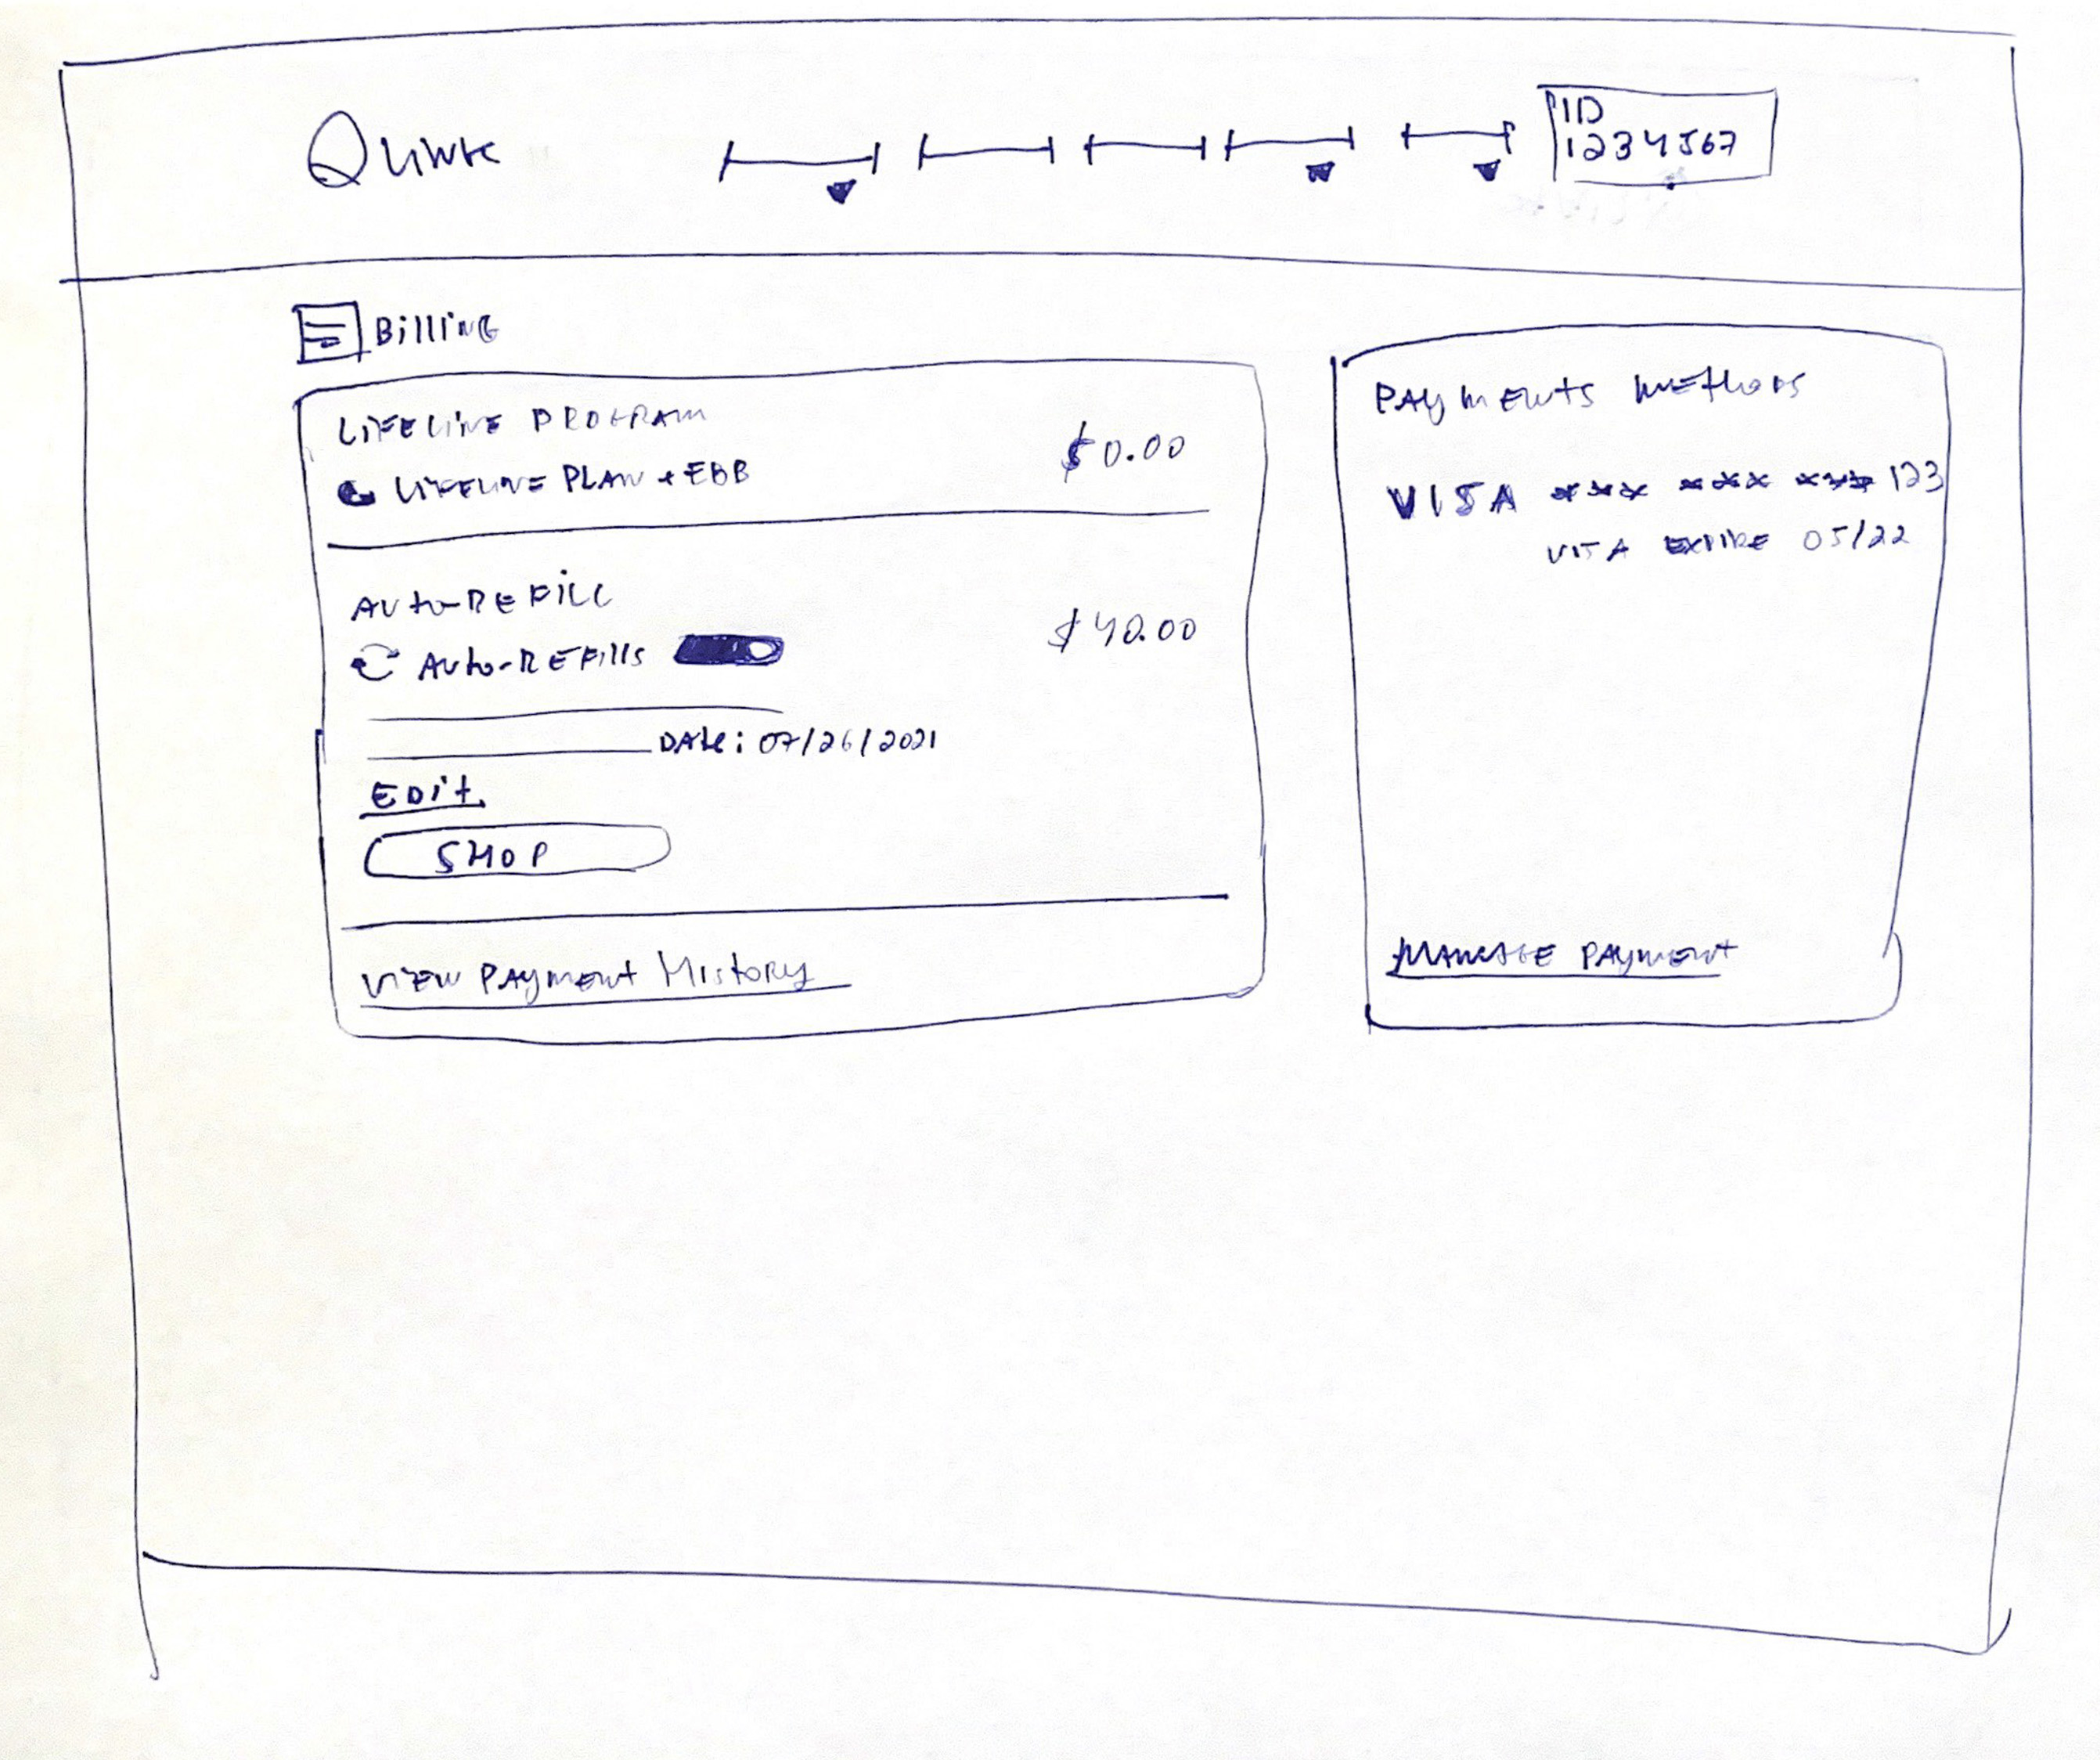 QLINK
ID
1234567
Billing
LIFELINE PROGRAM
LIFELINE PLAN + EBB
$0.00
AUTO-REFILL
AUTO-REFILLS
$40.00
DATE: 07/26/2021
EDIT
SHOP
VIEW PAYMENT HISTORY
PAYMENTS METHODS
VISA *** *** *** 123
VISA EXPIRE 05/22
MANAGE PAYMENT